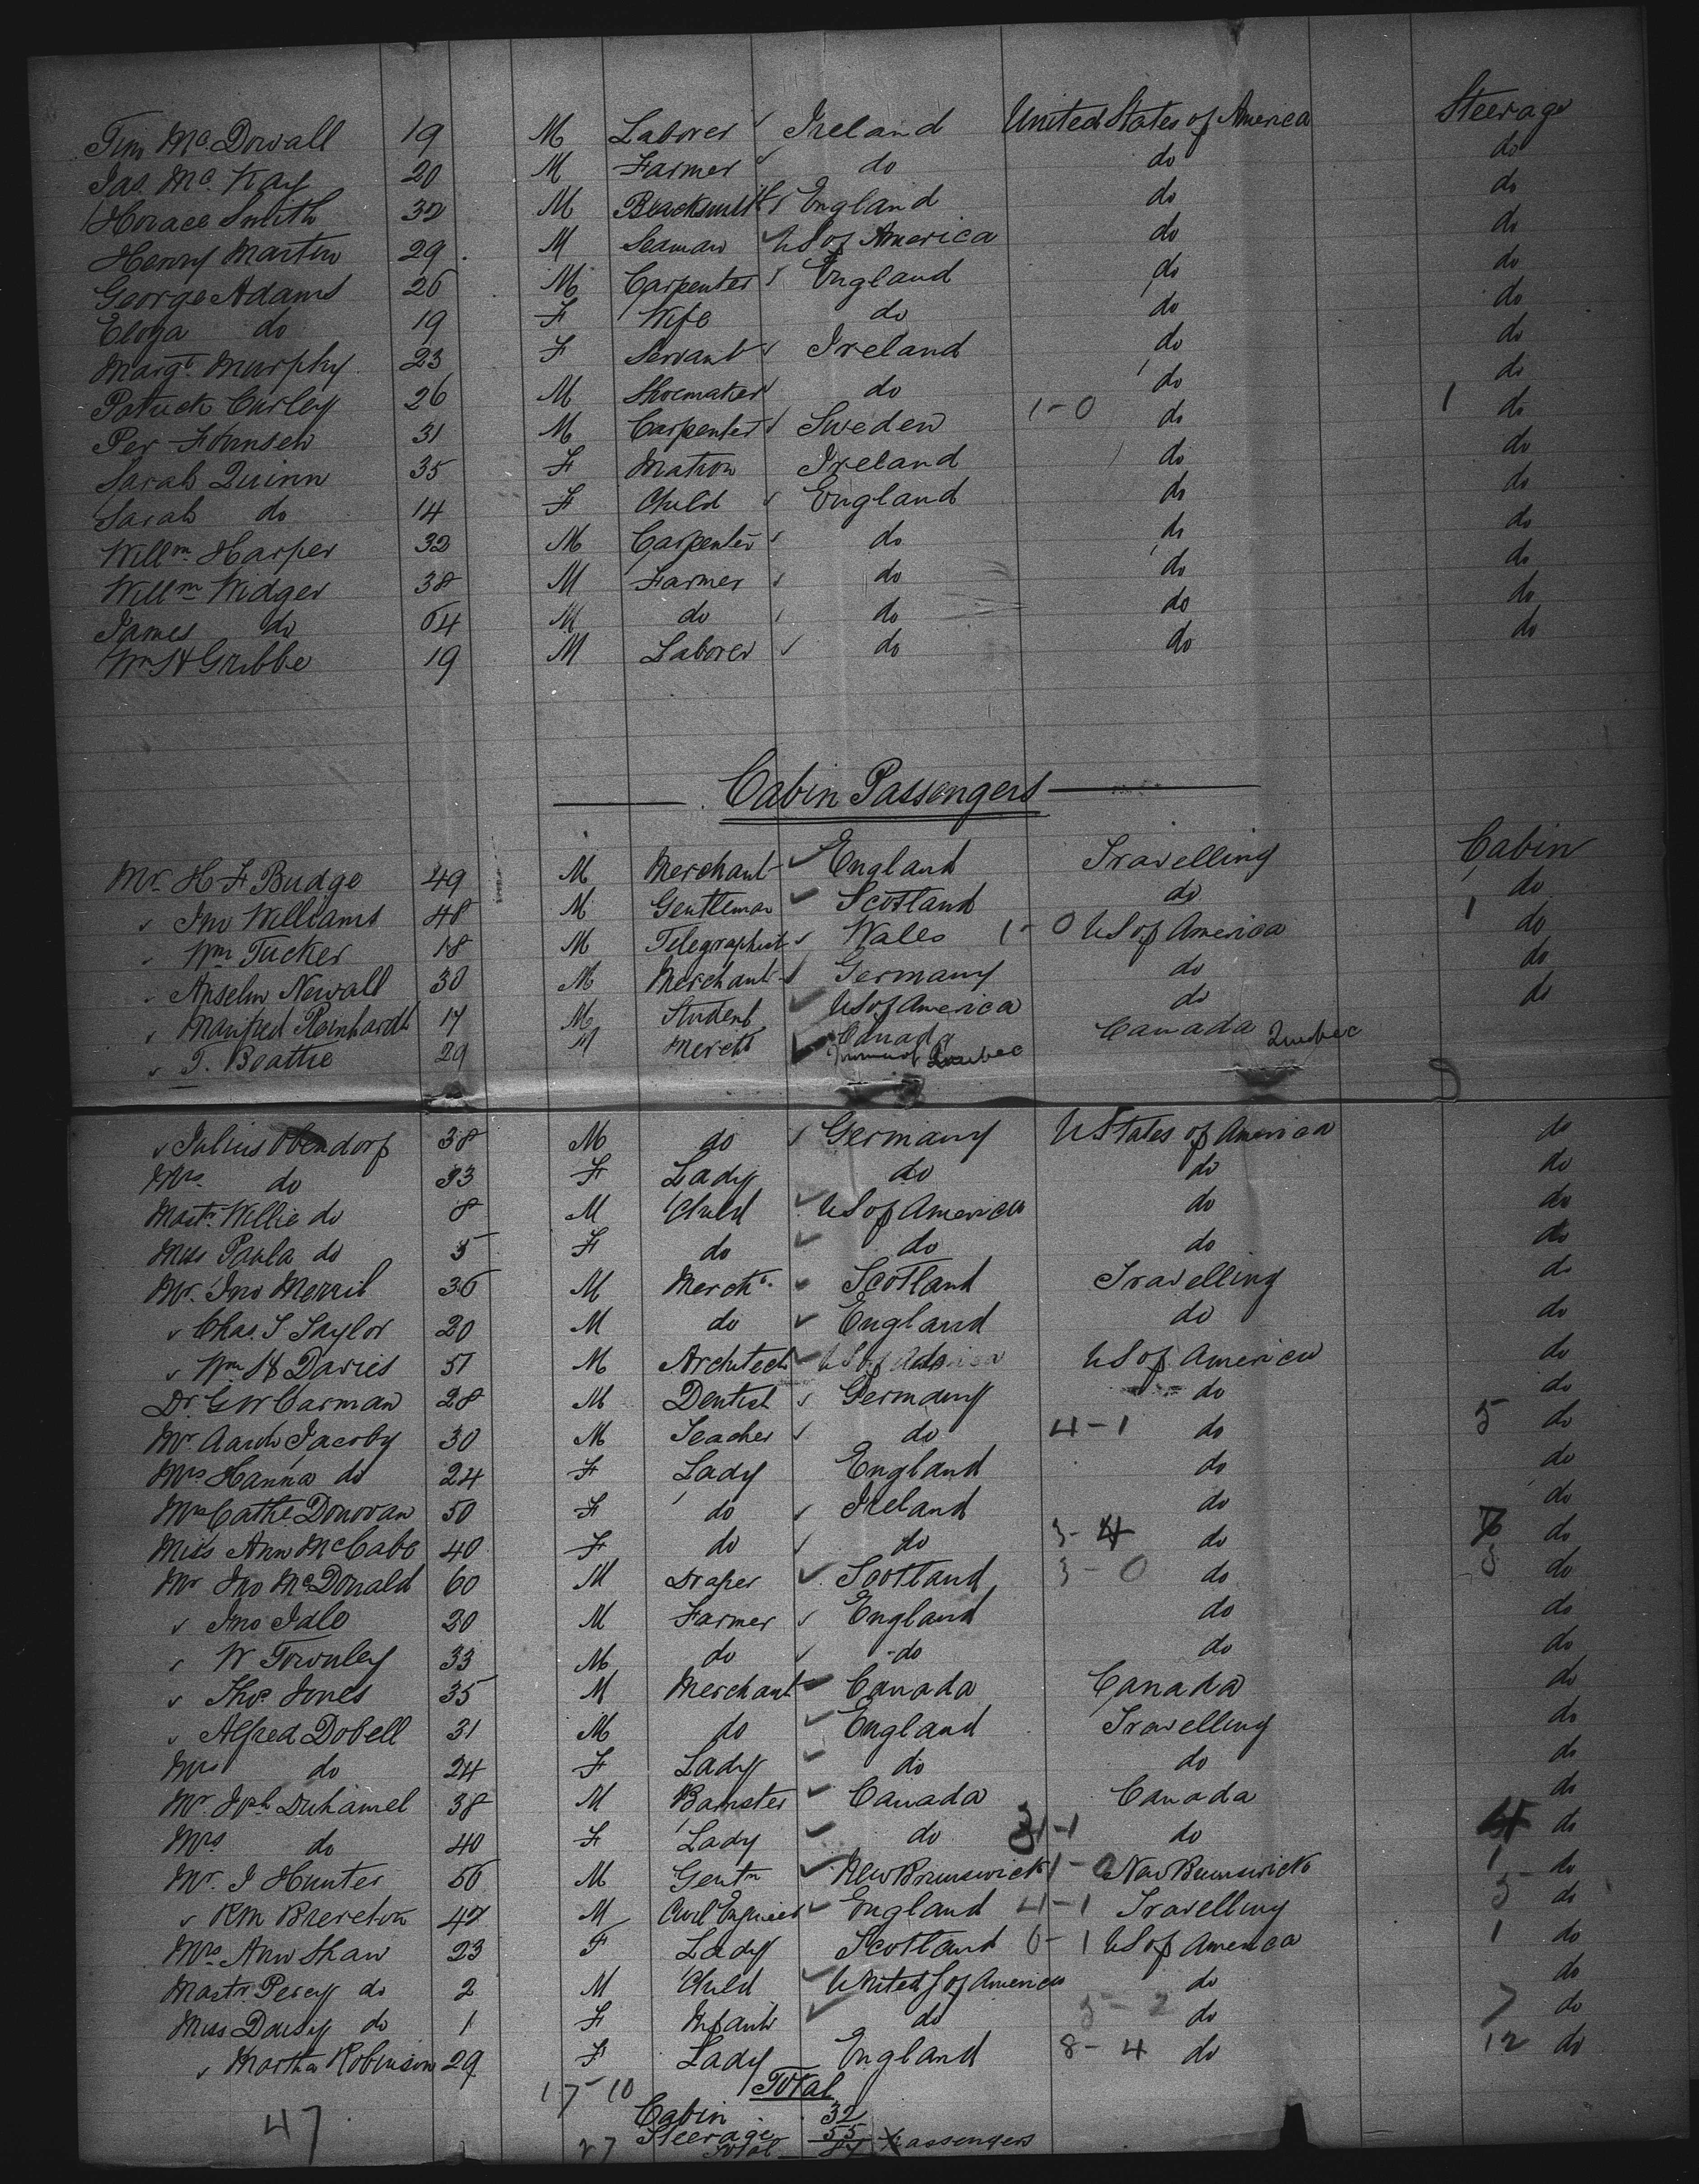 Tim McDowall 19 M Laborer Ireland United States of America Steerage
Jas. Mc Kay 20 M Farmer do do do
Horace Smith 32 M Blacksmith England do do
Henry Martin 29 M Seaman US of America do do
George Adams 26 M Carpenter England do do
Eloza do 19 F Wife do do do
Margt. Murphy 23 F Servant Ireland do do
Patrick Curley 26 M Shoemaker do do do
Per 31 M Carpenter Sweden 1-0 do 1 do
Sarah Quinn 35 F Matron Ireland do do
Sarah do 14 F Child England do do
Willm Harper 32 M Carpenter do do do
Willm Widger 38 M Farmer do do do
James do 64 M do do do do
Wm H Gribbe 19 M Laborer do do do
Cabin Passengers
Mr. H F Budge 49 M Merchant England Travelling Cabin
" Jno Williams 48 M Gentleman Scotland do do
" Wm Tucker 18 M Telegraphist Wales 1-0 US of America 1 do
" Anselm Newall 30 M Merchant Germany do do
" Manfred Reinhardt 17 M Student US of America do do
" T. Beattie 29 M Mercht Canada Quebec Canada Quebec
" Julius Obendorf 38 M do Germany U States of America do
Mrs. do 33 F Lady do do do
Mastr. Willie do 8 M Child US of America do do
Miss Paula do 5 F do do do do
Mr. Jno Merril 36 M Mercht. Scotland Travelling do
" Chas. S Taylor 20 M do England do do
" Wm H Davies 51 M Architect US of America US of America do
Dr. G W Carman 28 M Dentist Germany do do
Mr Jacoby 30 M Teacher do 4-1 do 5 do
Mrs Hanna do 24 F Lady England do do
Mrs Cathe. Donovan 50 F do Ireland do do
Miss Ann McCabe 40 F do do 3-4 do 7 do
Mr Jno McDonald 60 M Draper Scotland 3-0 do 3 do
" Jno Idle 30 M Farmer England do do
" W Townley 33 M do do do do
" Thos Jones 35 M Merchant Canada Canada do
" Alfred Dobell 31 M do England Travelling do
Mrs do 24 F Lady do do do
Mr. Jph Duhamel 38 M Barrister Canada Canada do
Mrs do 40 F Lady do 3-1 do 4 do
Mr. J Hunter 56 M Gentn New Brunswick 1-0 New Brunswick 1 do
" R M Brereton 42 M Civil Engineer England 4-1 Travelling 5 do
Mrs. Ann Shaw 23 F Lady Scotland 0-1 US of America 1 do
Mastr. Percy do 2 M Child United S of America do do
Miss Daisy do 1 F Infant do 5-2 do 7 do
" Martha Robinson 29 F Lady England 8-4 do 12 do
17-10 Total
Cabin 32
47 Steerage 55
27 Total 87 Passengers